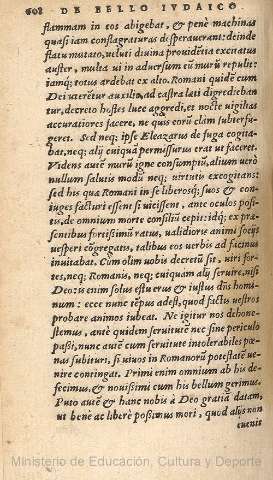 608 DE BELLO IVDAICO
flammam in eos abigebat, & penè machinas
quasi iam conflagraturas desperauerant: deinde
flatu mutato, ueluti diuina prouidētia excitatus
auster, multa ui in aduersum eū murū repulit:
iamq; totus ardebat ex alto. Romani quidē cum
Dei uterētur auxilio, ad castra læti digrediebān
tur, decreto hostes luce aggredi, et nocte uigilias
accuratiores facere, ne quis eorū clam subterfu-
geret. Sed neq; ipse Eleazarus de fuga cogita
bat, neq; alij cuiquā permissurus erat ut faceret.
Videns autē murū igne consumptū, alium uerò
nullum salutis modū neq; uirtutis excogitans:
sed his quæ Romani in se liberosq; suos & con-
iuges facturi essent si uicissent, ante oculos posi
tis, de omnium morte consiliū cepit: idq; ex præ-
sentibus fortissimū ratus, ualidioris animi socijs
uesperi cōgregatis, talibus eos uerbis ad facinus
inuitabat. Cum olim uobis decretū sit, uiri for-
tes, neq; Romanis, neq; cuiquam alij seruire, nisi
Deo: is enim solus est uerus & iustus dn̄s homi-
num: ecce nunc tēpus adest, quod factis uestros
probare animos iubeat. Ne igitur nos dehone-
stemus, antè quidem seruitutē nec sine periculo
passi, nunc autē cum seruitute intolerabiles pœ-
nas subituri, si uiuos in Romanorū potestatē ue-
nire contingat. Primi enim omnium ab his de-
fecimus, & nouissimi cum his bellum gerimus.
Puto autē & hanc nobis à Deo gratiā datam,
ut bene ac liberè possimus mori, quod alijs non
euenit
Ministerio de Educación, Cultura y Deporte